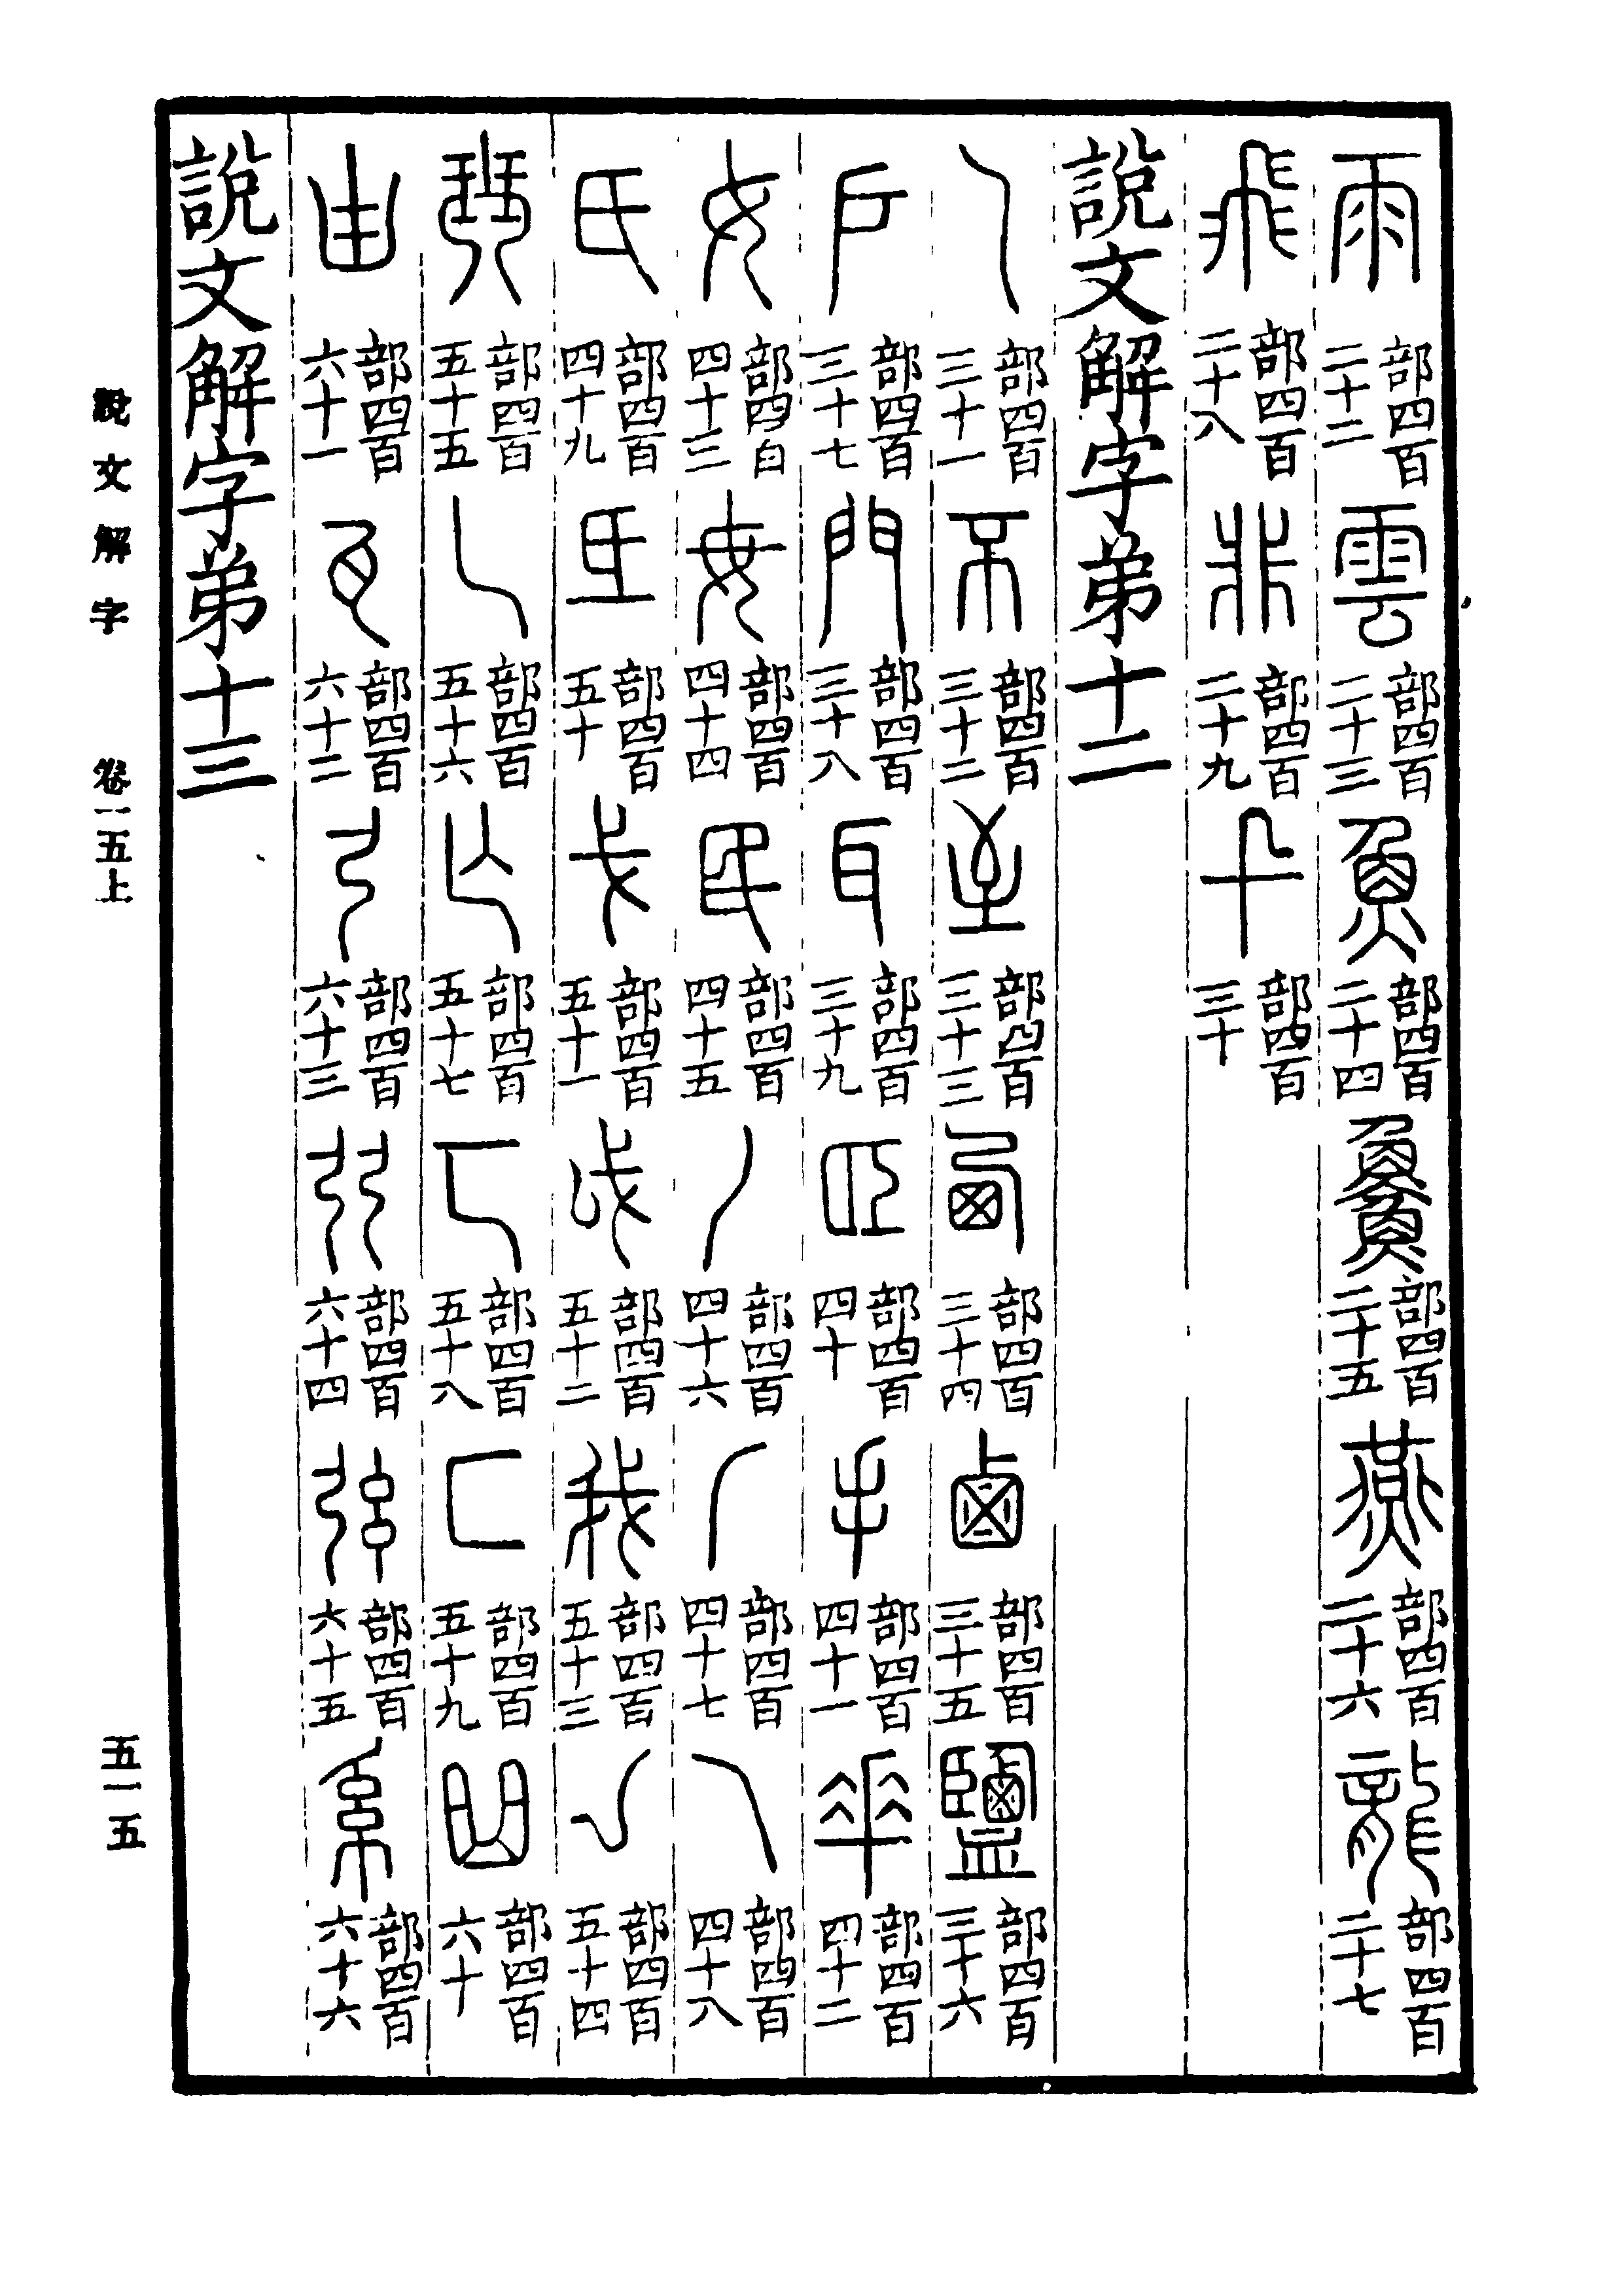 雨 部四百二十二 雲 部四百二十三 魚 部四百二十四 𩺰 部四百二十五 燕 部四百二十六 龍 部四百二十七
飛 部四百二十八 非 部四百二十九 卂 部四百三十
說文解字弟十二
乁 部四百三十一 不 部四百三十二 至 部四百三十三 西 部四百三十四 鹵 部四百三十五 鹽 部四百三十六
戶 部四百三十七 門 部四百三十八 耳 部四百三十九 𦣞 部四百四十 手 部四百四十一 𠦬 部四百四十二
女 部四百四十三 毋 部四百四十四 民 部四百四十五 丿 部四百四十六 𠂆 部四百四十七 乁 部四百四十八
氏 部四百四十九 氐 部四百五十 戈 部四百五十一 戉 部四百五十二 我 部四百五十三 亅 部四百五十四
珡 部四百五十五 乚 部四百五十六 亾 部四百五十七 匸 部四百五十八 匚 部四百五十九 曲 部四百六十
甾 部四百六十一 瓦 部四百六十二 弓 部四百六十三 弜 部四百六十四 弦 部四百六十五 系 部四百六十六
說文解字弟十三
說文解字 卷一五上
五一五